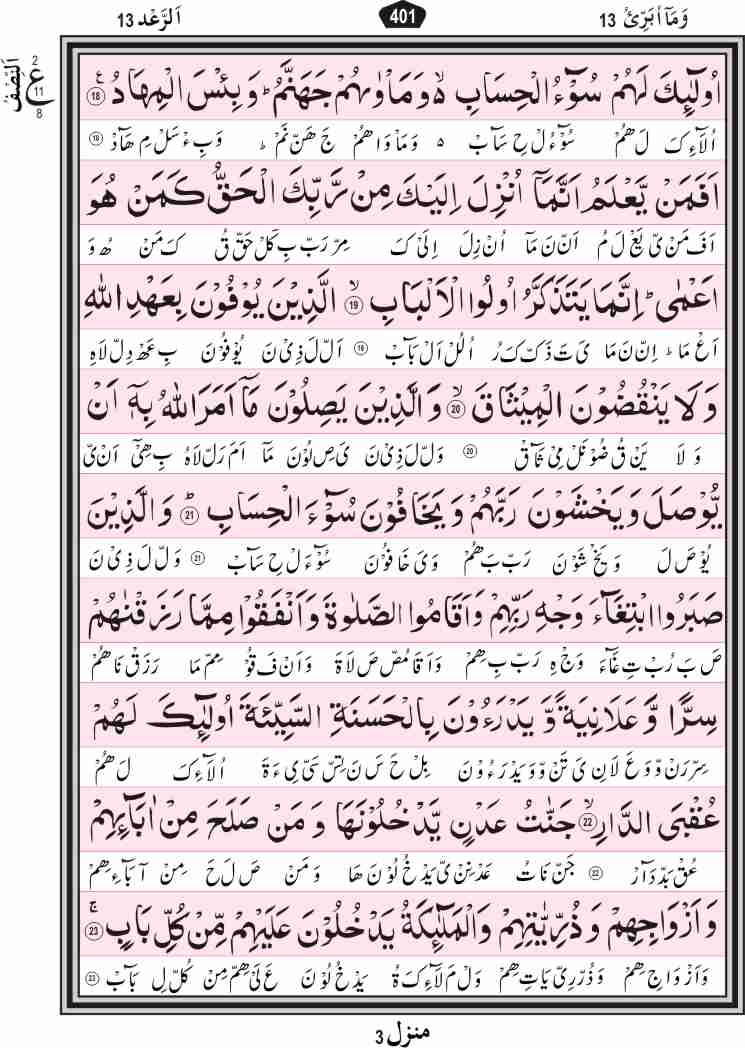 وَمَآ اُبَرِّئُ 13
401
اَلرَّعْد 13
اَلنِّصْفُ
2
ع
11
8
اُولٰٓئِكَ لَهُمْ سُوْٓءُ الْحِسَابِ ۙ وَمَاْوٰىهُمْ جَهَنَّمُ ؕ وَبِئْسَ الْمِهَادُ ۧ 18
اُلَآءِ كَ لَ هُمْ سُوْٓءُ لْ حِ سَآبْ ۵ وَمَاْ وَا هُمْ جَ هَنْ نَمْ ؕ وَبِ ءْ سَلْ مِ هَآدْ 18
اَفَمَنْ يَّعْلَمُ اَنَّمَآ اُنْزِلَ اِلَيْكَ مِنْ رَّبِّكَ الْحَقُّ كَمَنْ هُوَ
اَفَ مَنْ یْ یَعْ لَ مُ اَنْ نَ مَآ اُنْ زِلَ اِلَیْ کَ مِرْ رَبْ بِ کَلْ حَقْ قُ کَ مَنْ هُ وَ
اَعْمٰى ؕ اِنَّمَا يَتَذَكَّرُ اُولُوا الْاَلْبَابِ ۙ 19 الَّذِيْنَ يُوْفُوْنَ بِعَهْدِ اللّٰهِ
اَعْ مَا ؕ اِنْ نَ مَا یَ تَ ذَکْ کَ رُ اُلُلْ اَلْ بَآبْ 19 اَلْ لَ ذِیْ نَ یُوْفُوْنَ بِ عَهْ دِ لْ لَاهِ
وَلَا يَنْقُضُوْنَ الْمِيْثَاقَ ۙ 20 وَالَّذِيْنَ يَصِلُوْنَ مَآ اَمَرَ اللّٰهُ بِهٖٓ اَنْ
وَ لَا یَنْ قُ ضُوْ نَلْ مِیْ ثَآقْ 20 وَلْ لَ ذِیْ نَ یَ صِ لُوْنَ مَآ اَمَ رَلْ لَاهُ بِ هِیْٓ اَنْ یْ
يُّوْصَلَ وَيَخْشَوْنَ رَبَّهُمْ وَيَخَافُوْنَ سُوْٓءَ الْحِسَابِ ؕ 21 وَالَّذِيْنَ
یُوْ صَ لَ وَ یَخْ شَوْنَ رَبْ بَ هُمْ وَیَ خَا فُوْنَ سُوْٓءَ لْ حِ سَآبْ 21 وَلْ لَ ذِیْ نَ
صَبَرُوا ابْتِغَآءَ وَجْهِ رَبِّهِمْ وَاَقَامُوا الصَّلٰوةَ وَاَنْفَقُوْا مِمَّا رَزَقْنٰهُمْ
صَ بَ رُبْ تِ غَآءَ وَجْ هِ رَبْ بِ هِمْ وَ اَقَا مُصْ صَ لَاةَ وَاَنْ فَ قُوْ مِمْ مَا رَزَقْ نَا هُمْ
سِرًّا وَّعَلَانِيَةً وَّيَدْرَءُوْنَ بِالْحَسَنَةِ السَّيِّئَةَ اُولٰٓئِكَ لَهُمْ
سِرْ رَنْ وْ وَ عَ لَانِ یَ تَنْ وْ وَیَدْ رَءُوْ نَ بِلْ حَ سَ نَ تِسْ سَیْ یِ ءَ ةَ اُلَآءِ كَ لَ هُمْ
عُقْبَى الدَّارِ ۙ 22 جَنّٰتُ عَدْنٍ يَّدْخُلُوْنَهَا وَمَنْ صَلَحَ مِنْ اٰبَآئِهِمْ
عُقْ بَدْ دَآرْ 22 جَنْ نَاتُ عَدْ نِنْ یْ یَدْ خُ لُوْنَ هَا وَ مَنْ صَ لَ حَ مِنْ آ بَآءِ هِمْ
وَاَزْوَاجِهِمْ وَذُرِّيّٰتِهِمْ وَالْمَلٰٓئِكَةُ يَدْخُلُوْنَ عَلَيْهِمْ مِّنْ كُلِّ بَابٍ ۚ 23
وَاَزْ وَاجِ هِمْ وَ ذُرْ رِیْ یَاتِ هِمْ وَلْ مَ لَآءِ كَ ةُ یَدْ خُ لُوْ نَ عَ لَیْ هِمْ مِنْ كُلْ لِ بَآبْ 23
منزل 3